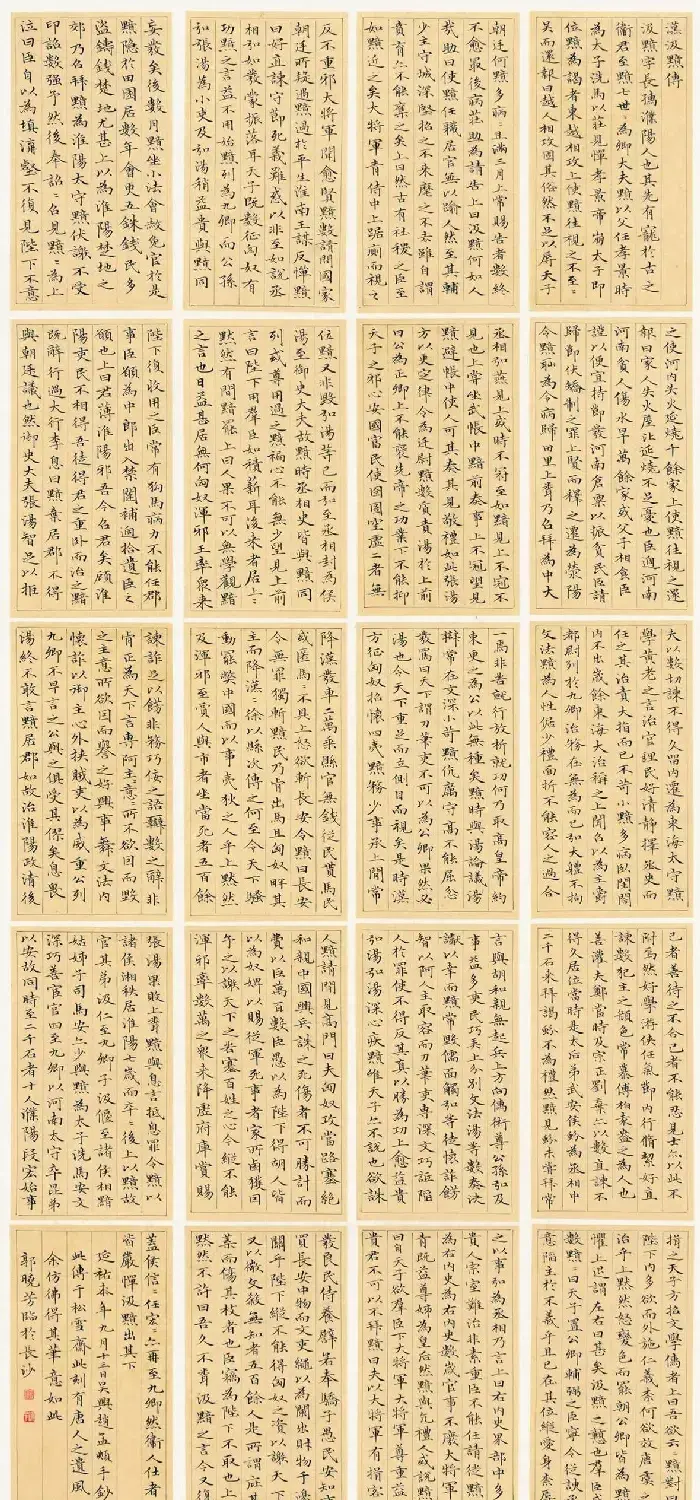 漢汲黯傳
汲黯字長孺濮陽人也其先有寵於古之
衛君至黯七世〻為卿大夫黯以父任孝景時
為太子洗馬以莊見憚孝景帝崩太子即
位黯為謁者東越相攻上使黯往視之不至〻
吳而還報曰越人相攻固其俗然不足以辱天子
之使河內失火延燒千餘家上使黯往視之還
報曰家人失火屋比延燒不足憂也臣過河南
河南貧人傷水旱萬餘家或父子相食臣
謹以便宜持節發河南倉粟以振貧民臣請
歸節伏矯制之罪上賢而釋之遷為滎陽
令黯恥為令病歸田里上聞乃召拜為中大
夫以數切諫不得久留內遷為東海太守黯
學黃老之言治官理民好清靜擇丞史而
任之其治責大指而已不苛小黯多病臥閨閤
內不出歲餘東海大治稱之上聞召以為主爵
都尉列於九卿治務在無為而已弘大體不拘
文法黯為人性倨少禮面折不能容人之過合
己者善待之不合己者不能忍見士亦以此不
附焉然好學游俠任氣節內行脩絜好直
諫數犯主之顏色常慕傅柏袁盎之為人也
善灌夫鄭當時及宗正劉棄亦以數直諫不
得久居位當時是太后弟武安侯蚡為丞相中
二千石來拜謁蚡不為禮然黯見蚡未嘗拜常
揖之天子方招文學儒者上曰吾欲云〻黯對曰
陛下內多欲而外施仁義奈何欲效唐虞
治乎上默然怒變色而罷朝公卿皆為黯
懼上退謂左右曰甚矣汲黯之戇也羣臣
數黯〻曰天子置公卿輔弼之臣寧令從諛
意陷主於不義乎且已在其位縱愛身奈辱
朝廷何黯多病〻且滿三月上常賜告者數終
不愈最後病莊助為請告上曰汲黯何如人
哉助曰使黯任職居官無以踰人然至其輔
少主守城深堅招之不來麾之不去雖自謂
賁育亦不能奪之矣上曰然古有社稷之臣至
如黯近之矣大將軍青侍中上踞廁而視之
丞相弘燕見上或時不冠至如黯見上不冠不
見也上常坐武帳中黯前奏事上不冠望見
黯避帳中使人可其奏其見敬禮如此張湯
方以更定律令為廷尉黯數質責湯於上前
曰公為正卿上不能褒先帝之功業下不能抑
天子之邪心安國富民使囹圄空虛二者無
一焉非苦就行放析就功何乃取高皇帝約
束更之為公以此無種矣黯時與湯論議湯
辯常在文深小苛黯伉厲守高不能屈忿
發罵曰天下謂刀筆吏不可以為公卿果然必
湯也令天下重足而立側目而視矣是時漢
方征匈奴招懷四夷黯務少事承上閒常
言與胡和親無起兵上方向儒術尊公孫弘及
事益多吏民巧弄上分別文法湯等數奏決
讞以幸而黯常毀儒面觸弘等徒懷詐飾
智以阿人主取容而刀筆吏專深文巧詆陷
人於罪使不得反其真以勝為功上愈益貴
弘湯弘湯深心疾黯雖天子亦不說也欲誅
之以事弘為丞相乃言上曰右內史界部中多
貴人宗室難治非素重臣不能任請徙黯
為右內史為右內史數歲官事不廢大將軍
青既益尊姊為皇后然黯與亢禮人或說黯
曰自天子欲羣臣下大將軍大將軍尊重益
貴君不可以不拜黯曰夫以大將軍有揖客
反不重邪大將軍聞愈賢黯數請問國家
朝廷所疑遇黯過於平生淮南王謀反憚黯
曰好直諫守節死義難惑以非至如說丞
相弘如發蒙振落耳天子既數征匈奴有
功黯之言益不用始黯列為九卿而公孫
弘張湯為小吏及弘湯稍益貴與黯同
位黯又非毀弘湯等已而弘至丞相封為侯
湯至御史大夫故黯時丞相史皆與黯同
列或尊用過之黯褊心不能無少望見上前
言曰陛下用羣臣如積薪耳後來者居上〻
默然有間黯罷上曰人果不可以無學觀黯
之言也日益甚居無何匈奴渾邪王率眾來
降漢發車二萬乘縣官無錢從民貰馬民
或匿馬〻不具上怒欲斬長安令黯曰長安
令無罪獨斬黯民乃肯出馬且匈奴畔其
主而降漢〻徐以縣次傳之何至令天下騷
動罷獘中國而以事夷狄之人乎上默然
及渾邪至賈人與市者坐當死者五百餘
人黯請間見高門曰夫匈奴攻當路塞絕
和親中國興兵誅之死傷者不可勝計而
費以巨萬百數臣愚以為陛下得胡人皆
以為奴婢以賜從軍死事者家所鹵獲因
予之以謝天下之苦塞百姓之心今縱不能
渾邪率數萬之眾來降虛府庫賞賜
發良民侍養譬若奉驕子愚民安知
買長安中物而文吏繩以為闌出財物于邊
關乎陛下縱不能得匈奴之資以謝天下
又以微文殺無知者五百餘人是所謂庇其
葉而傷其枝者也臣竊為陛下不取也上
默然不許曰吾久不聞汲黯之言今又復
妄發矣後數月黯坐小法會赦免官於是
黯隱於田園居數年會更五銖錢民多
盜鑄錢楚地尤甚上以為淮陽楚地之
郊乃召拜黯為淮陽太守黯伏謝不受
印詔數強予然後奉詔〻召見黯〻為上
泣曰臣自以為填溝壑不復見陛下不意
陛下復收用之臣常有狗馬病力不能任郡
事臣願為中郎出入禁闥補過拾遺臣之
願也上曰君薄淮陽邪吾今召君矣顧淮
陽吏民不相得吾徒得君之重臥而治之黯
既辭行過大行李息曰黯棄居郡不得
與朝廷議也然御史大夫張湯智足以拒
諫詐足以飾非務巧佞之語辯數之辭非
肯正為天下言專阿主〻意〻所不欲因而毀
之主意所欲因而譽之好興事舞文法內
懷詐以御主心外挾賊吏以為威重公列
九卿不早言之公與之俱受其僇矣息畏
湯終不敢言黯居郡如故治淮陽政清後
張湯果敗上聞黯與息言抵息罪令黯以
諸侯相秩居淮陽七歲而卒〻後上以黯故
官其弟汲仁至九卿子汲偃至諸侯相黯
姑姊子司馬安亦少與黯為太子洗馬安文
深巧善宦官四至九卿以河南太守卒昆弟
以安故同時至二千石者十人濮陽段宏始事
蓋侯信〻任宏〻亦再至九卿然衛人仕者
皆嚴憚汲黯出其下
延祐七年九月十三日吳興趙孟頫手鈔
此傳于松雪齋此刻有唐人之遺風
余仿佛得其筆意如此
郭曉芳臨於長沙